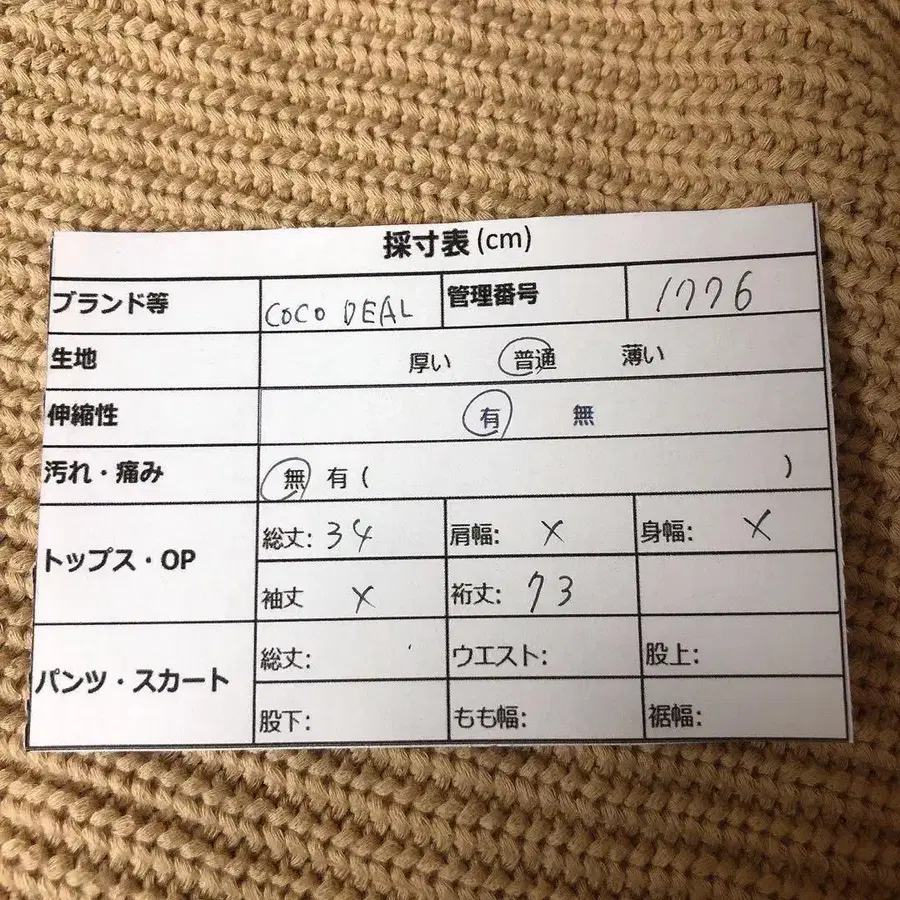 採寸表(cm)
ブランド等 COCO DEAL 管理番号 1776
生地 厚い 普通 薄い
伸縮性 有 無
汚れ・痛み 無 有 ( )
トップス・OP
総丈: 34 肩幅: × 身幅: ×
袖丈 × 裄丈: 73
パンツ・スカート
総丈: ウエスト: 股上:
股下: もも幅: 裾幅: